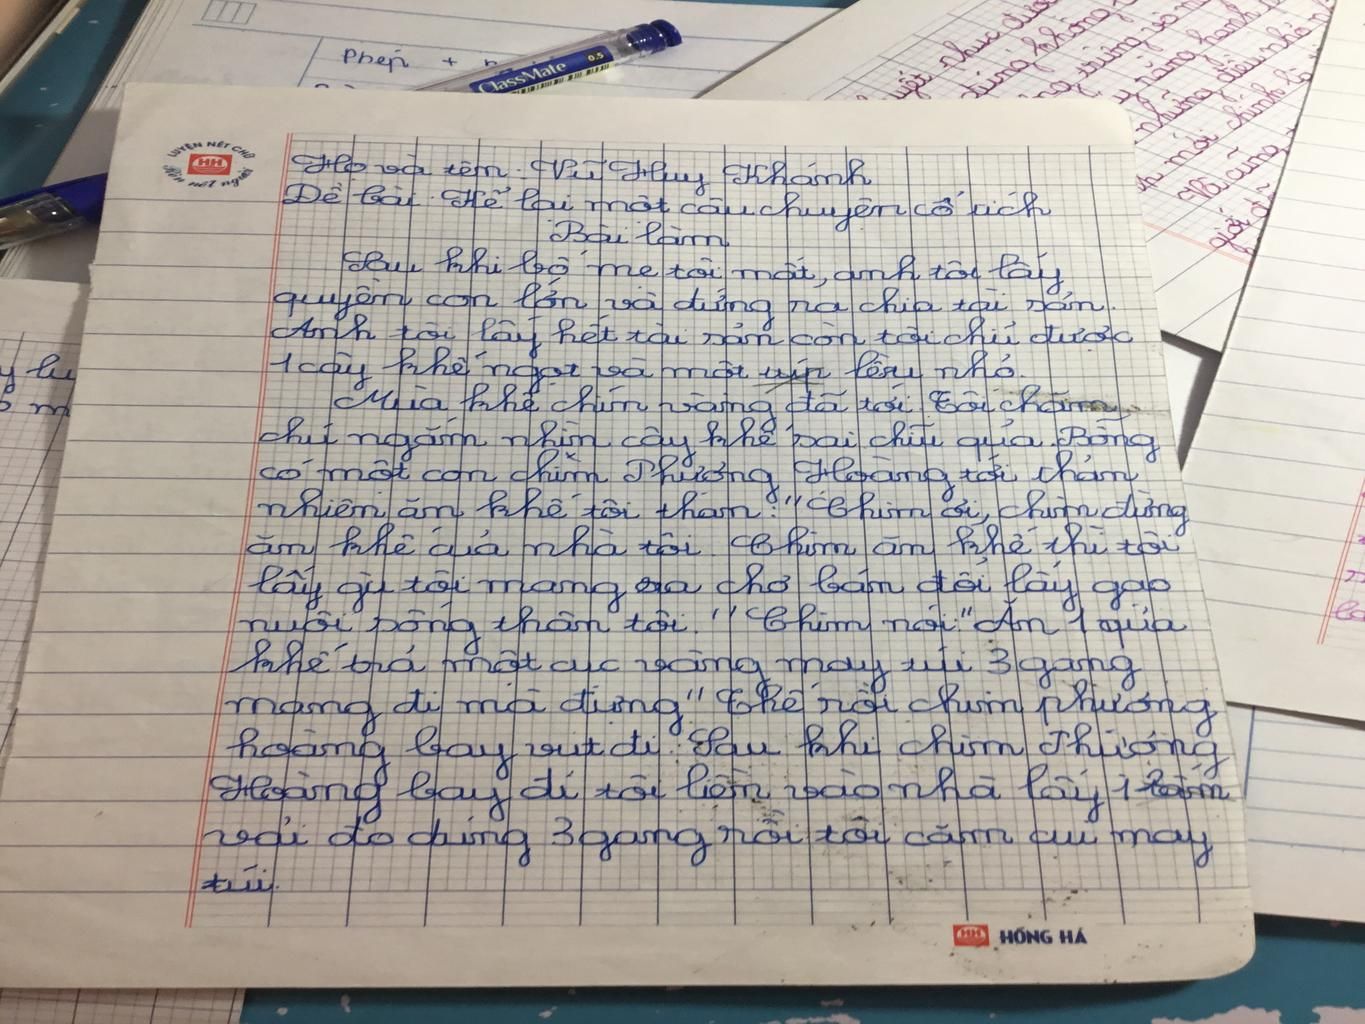 Phép +
ClassMate 0.5
LUYỆN NÉT CHỮ
HH
Rèn nết người
Họ và tên: Vũ Huy Khánh
Đề bài: Kể lại một câu chuyện cổ tích
Bài làm
Sau khi bố mẹ tôi mất, anh tôi lấy
quyền con lớn và đứng ra chia tài sản.
Anh tôi lấy hết tài sản còn tôi chỉ được
1 cây khế ngọt và một lều nhỏ.
Mùa khế chín vàng đã tới. Tôi chăm
chú ngắm nhìn cây khế sai chĩu quả. Bỗng
có một con chim Phượng Hoàng tới thản
nhiên ăn khế tôi than: "Chim ơi, chim đừng
ăn khế quả nhà tôi. Chim ăn khế thì tôi
lấy gì tôi mang ra chợ bán đổi lấy gạo
nuôi sống thân tôi." Chim nói: "Ăn 1 quả
khế trả một cục vàng may túi 3 gang
mang đi mà đựng" Thế rồi chim phượng
hoàng bay vút đi. Sau khi chim Phượng
Hoàng bay đi tôi liền vào nhà lấy 1 tấm
vải đo đúng 3 gang rồi tôi cặm cụi may
túi.
HH HỒNG HÀ